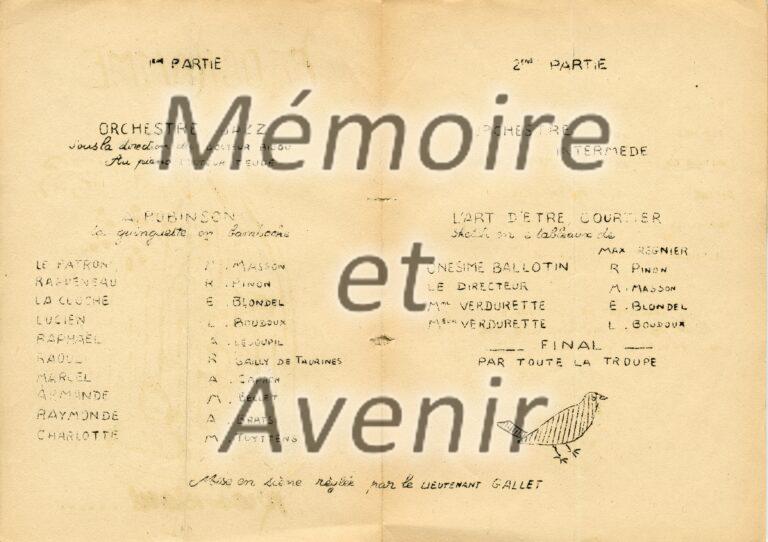 1ère PARTIE
ORCHESTRE JAZZ
Sous la direction du DOCTEUR
Au piano
A ROBINSON
la guinguette en bamboche
LE PATRON M. MASSON
RAGUENEAU R. PINON
LA CLOCHE E. BLONDEL
LUCIEN L. BOUDOUX
RAPHAËL A. LEJOUPIL
RAOUL R. GAILLY DE TAURINES
MARCEL A.
ARMANDE M. BELLET
RAYMONDE A. GRATS
CHARLOTTE M. TUYTTENS
2ème PARTIE
ORCHESTRE
INTERMEDE
L'ART D'ETRE COURTIER
Sketch en 2 tableaux de
MAX REGNIER
ONESIME BALLOTIN R. PINON
LE DIRECTEUR M. MASSON
Mme VERDURETTE E. BLONDEL
VERDURETTE L. BOUDOUX
FINAL
PAR TOUTE LA TROUPE
Mise en scène réglée par le LIEUTENANT GALLET
Mémoire
et
Avenir